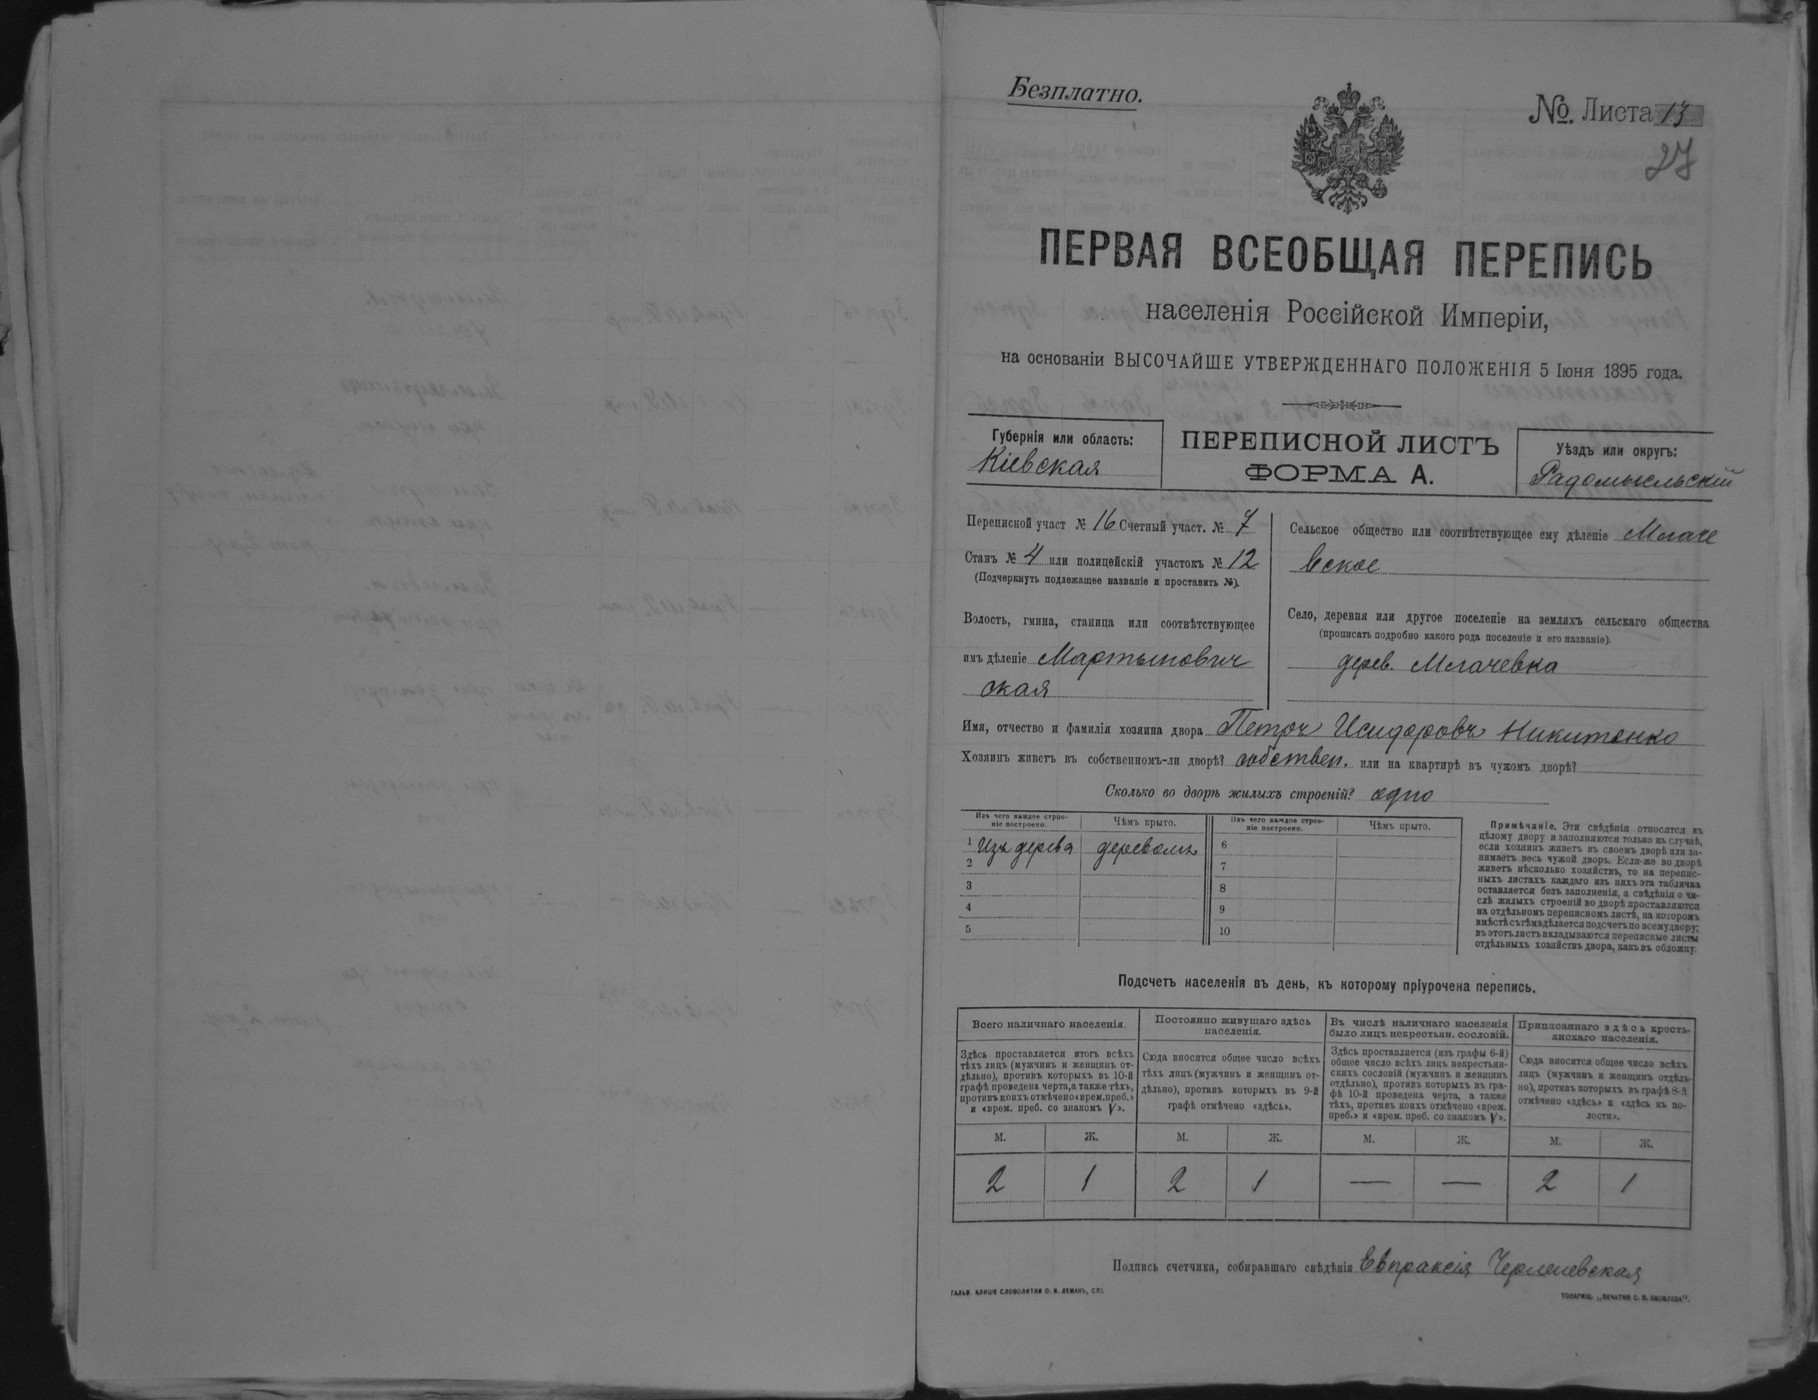 Безплатно.
№. Листа 13
27
ПЕРВАЯ ВСЕОБЩАЯ ПЕРЕПИСЬ
населенія Россійской Имперіи,
на основаніи ВЫСОЧАЙШЕ УТВЕРЖДЕННАГО ПОЛОЖЕНІЯ 5 Іюня 1895 года.
Губернія или область:
Кіевская
ПЕРЕПИСНОЙ ЛИСТЪ
ФОРМА А.
Уѣздъ или округъ:
Радомысльскій
Переписной участ № 16 Счетный участ. № 7
Станъ № 4 или полицейскій участокъ № 12
(Подчеркнуть подлежащее названіе и проставить №).
Волость, гмина, станица или соотвѣтствующее
имъ дѣленіе Мартынович
ская
Сельское общество или соотвѣтствующее ему дѣленіе Млаче
вское
Село, деревня или другое поселеніе на земляхъ сельскаго общества
(прописать подробно какого рода поселеніе и его названіе).
дерев. Млачевка
Имя, отчество и фамилія хозяина двора Петръ Исидоровъ Никитенко
Хозяинъ живетъ въ собственномъ-ли дворѣ? собствен. или на квартирѣ въ чужомъ дворѣ?
Сколько во дворѣ жилыхъ строеній? одно
Изъ чего каждое строе-
ніе построено.
Чѣмъ крыто.
Изъ чего каждое строе-
ніе построено.
Чѣмъ крыто.
1 Изъ дерева деревомъ
2
3
4
5
6
7
8
9
10
Примѣчаніе. Эти свѣдѣнія относятся къ
цѣлому двору и заполняются только въ случаѣ,
если хозяинъ живетъ въ своемъ дворѣ или за-
нимаетъ весь чужой дворъ. Если-же во дворѣ
живетъ нѣсколько хозяйствъ, то на перепис-
ныхъ листахъ каждаго изъ нихъ эта табличка
оставляется безъ заполненія, а свѣдѣнія о чи-
слѣ жилыхъ строеній во дворѣ проставляются
на отдѣльномъ переписномъ листѣ, на которомъ
вмѣстѣ съ тѣмъ дѣлается подсчетъ по всему двору;
въ этотъ листъ вкладываются переписные листы
отдѣльныхъ хозяйствъ двора, какъ въ обложку.
Подсчетъ населенія въ день, къ которому пріурочена перепись.
Всего наличнаго населенія.
Здѣсь проставляется итогъ всѣхъ
тѣхъ лицъ (мужчинъ и женщинъ от-
дѣльно), противъ которыхъ въ 10-й
графѣ проведена черта, а также тѣхъ,
противъ коихъ отмѣчено «врем. преб.»
и «врем. преб. со знакомъ V».
Постоянно живущаго здѣсь
населенія.
Сюда вносится общее число всѣхъ
тѣхъ лицъ (мужчинъ и женщинъ от-
дѣльно), противъ которыхъ въ 9-й
графѣ отмѣчено «здѣсь».
Въ числѣ наличнаго населенія
было лицъ некрестьян. сословій.
Здѣсь проставляется (изъ графы 6-й)
общее число всѣхъ лицъ некрестьян-
скихъ сословій (мужчинъ и женщинъ
отдѣльно), противъ которыхъ въ гра-
фѣ 10-й проведена черта, а также
тѣхъ, противъ коихъ отмѣчено «врем.
преб.» и «врем. преб. со знакомъ V».
Приписаннаго здѣсь кресть-
янскаго населенія.
Сюда вносится общее число всѣхъ
лицъ (мужчинъ и женщинъ отдѣль-
но), противъ которыхъ въ графѣ 8-й
отмѣчено «здѣсь» и «здѣсь въ во-
лости».
М. Ж. М. Ж. М. Ж. М. Ж.
2 1 2 1 — — 2 1
Подпись счетчика, собиравшаго свѣдѣнія Евпраксія
ГАЛЬВ. КЛИШЕ СЛОВОЛИТНИ О. И. ЛЕМАНЪ, СПБ.
ТОВАРИЩ. „ПЕЧАТНЯ С. П. ЯКОВЛЕВА".